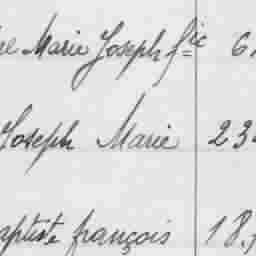 Marie Joseph fs ic 6
Joseph Marie 23
aptiste françois 18